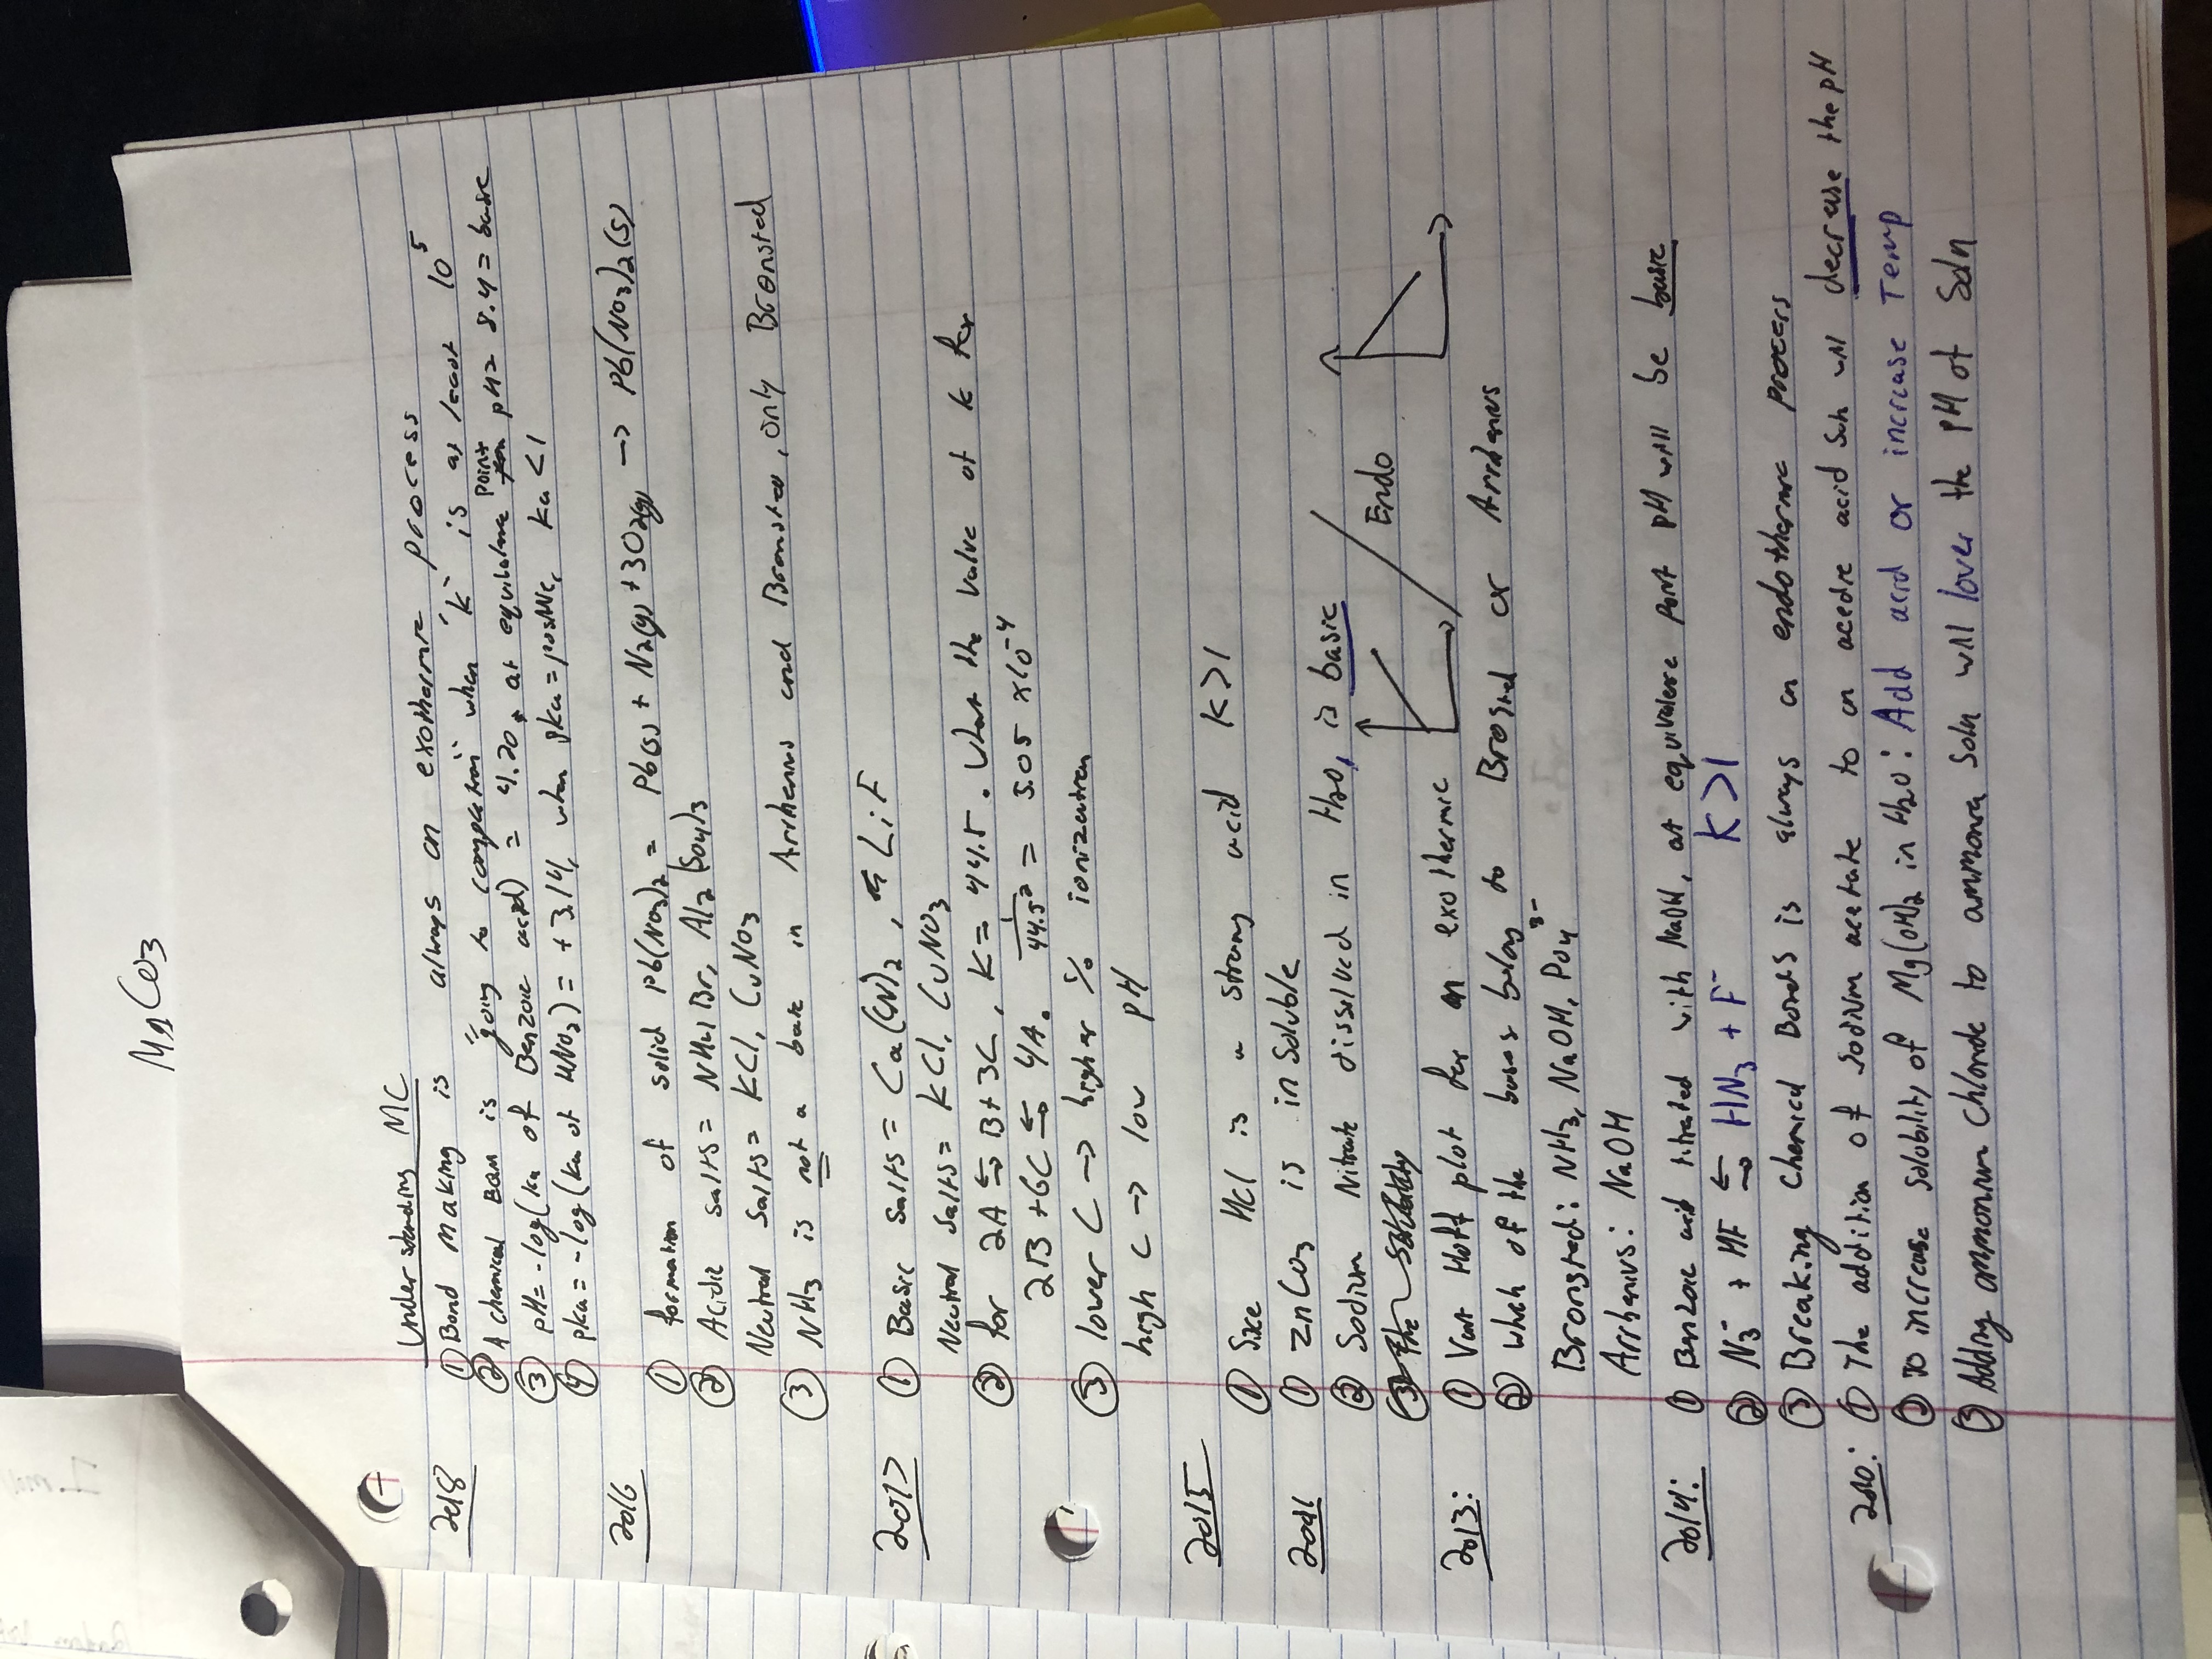 MgCO3
Understanding MC
2018 ① Bond making is always an exothermic process
② A chemical Bam is "going to completion" when "k" is at least 10^5
③ pH = -log(ka of Benzoic acid) = 4.20, at equivalence point pH = 8.4 = base
④ pka = -log(ka of HNO2) = +3.14, when pka = positive, ka < 1
2016 ① formation of solid Pb(NO3)2 = Pb(s) + N2(g) + 3O2(g) → Pb(NO3)2(s)
② Acidic salts = NH4Br, Al2(SO4)3
Neutral salts = KCl, CuNO3
③ NH3 is not a base in Arrhenius and Bronsted, only Bronsted
2017 ① Basic salts = Ca(CN)2, LiF
Neutral salts = KCl, CuNO3
② for 2A ⇆ B + 3C, K = 44.5. What the value of k for
2B + 6C ⇆ 4A. 1/44.5^2 = 5.05 x10^-4
③ lower C → higher % ionization
high C → low pH
2015 ① Since HCl is a strong acid K>1
2011 ① ZnCO3 is insoluble
② Sodium Nitrate dissolved in H2O, is basic
③ The solubility
2013: ① Vant Hoff plot for an exothermic / Endo
② which of the bases belong to Brosted or Arrhenius
Bronsted: NH3, NaOH, PO4^3-
Arrhenius: NaOH
2014: ① Benzoic acid titrated with NaOH, at equivalence Point pH will be basic
② N3^- + HF ⇆ HN3 + F^- K>1
③ Breaking chemical Bonds is always an endothermic process
2010: ① The addition of sodium acetate to an acedic acid soln will decrease the pH
② To increase solubility of Mg(OH)2 in H2O: Add acid or increase Temp
③ Adding ammonium chloride to ammonia soln will lower the PH of soln